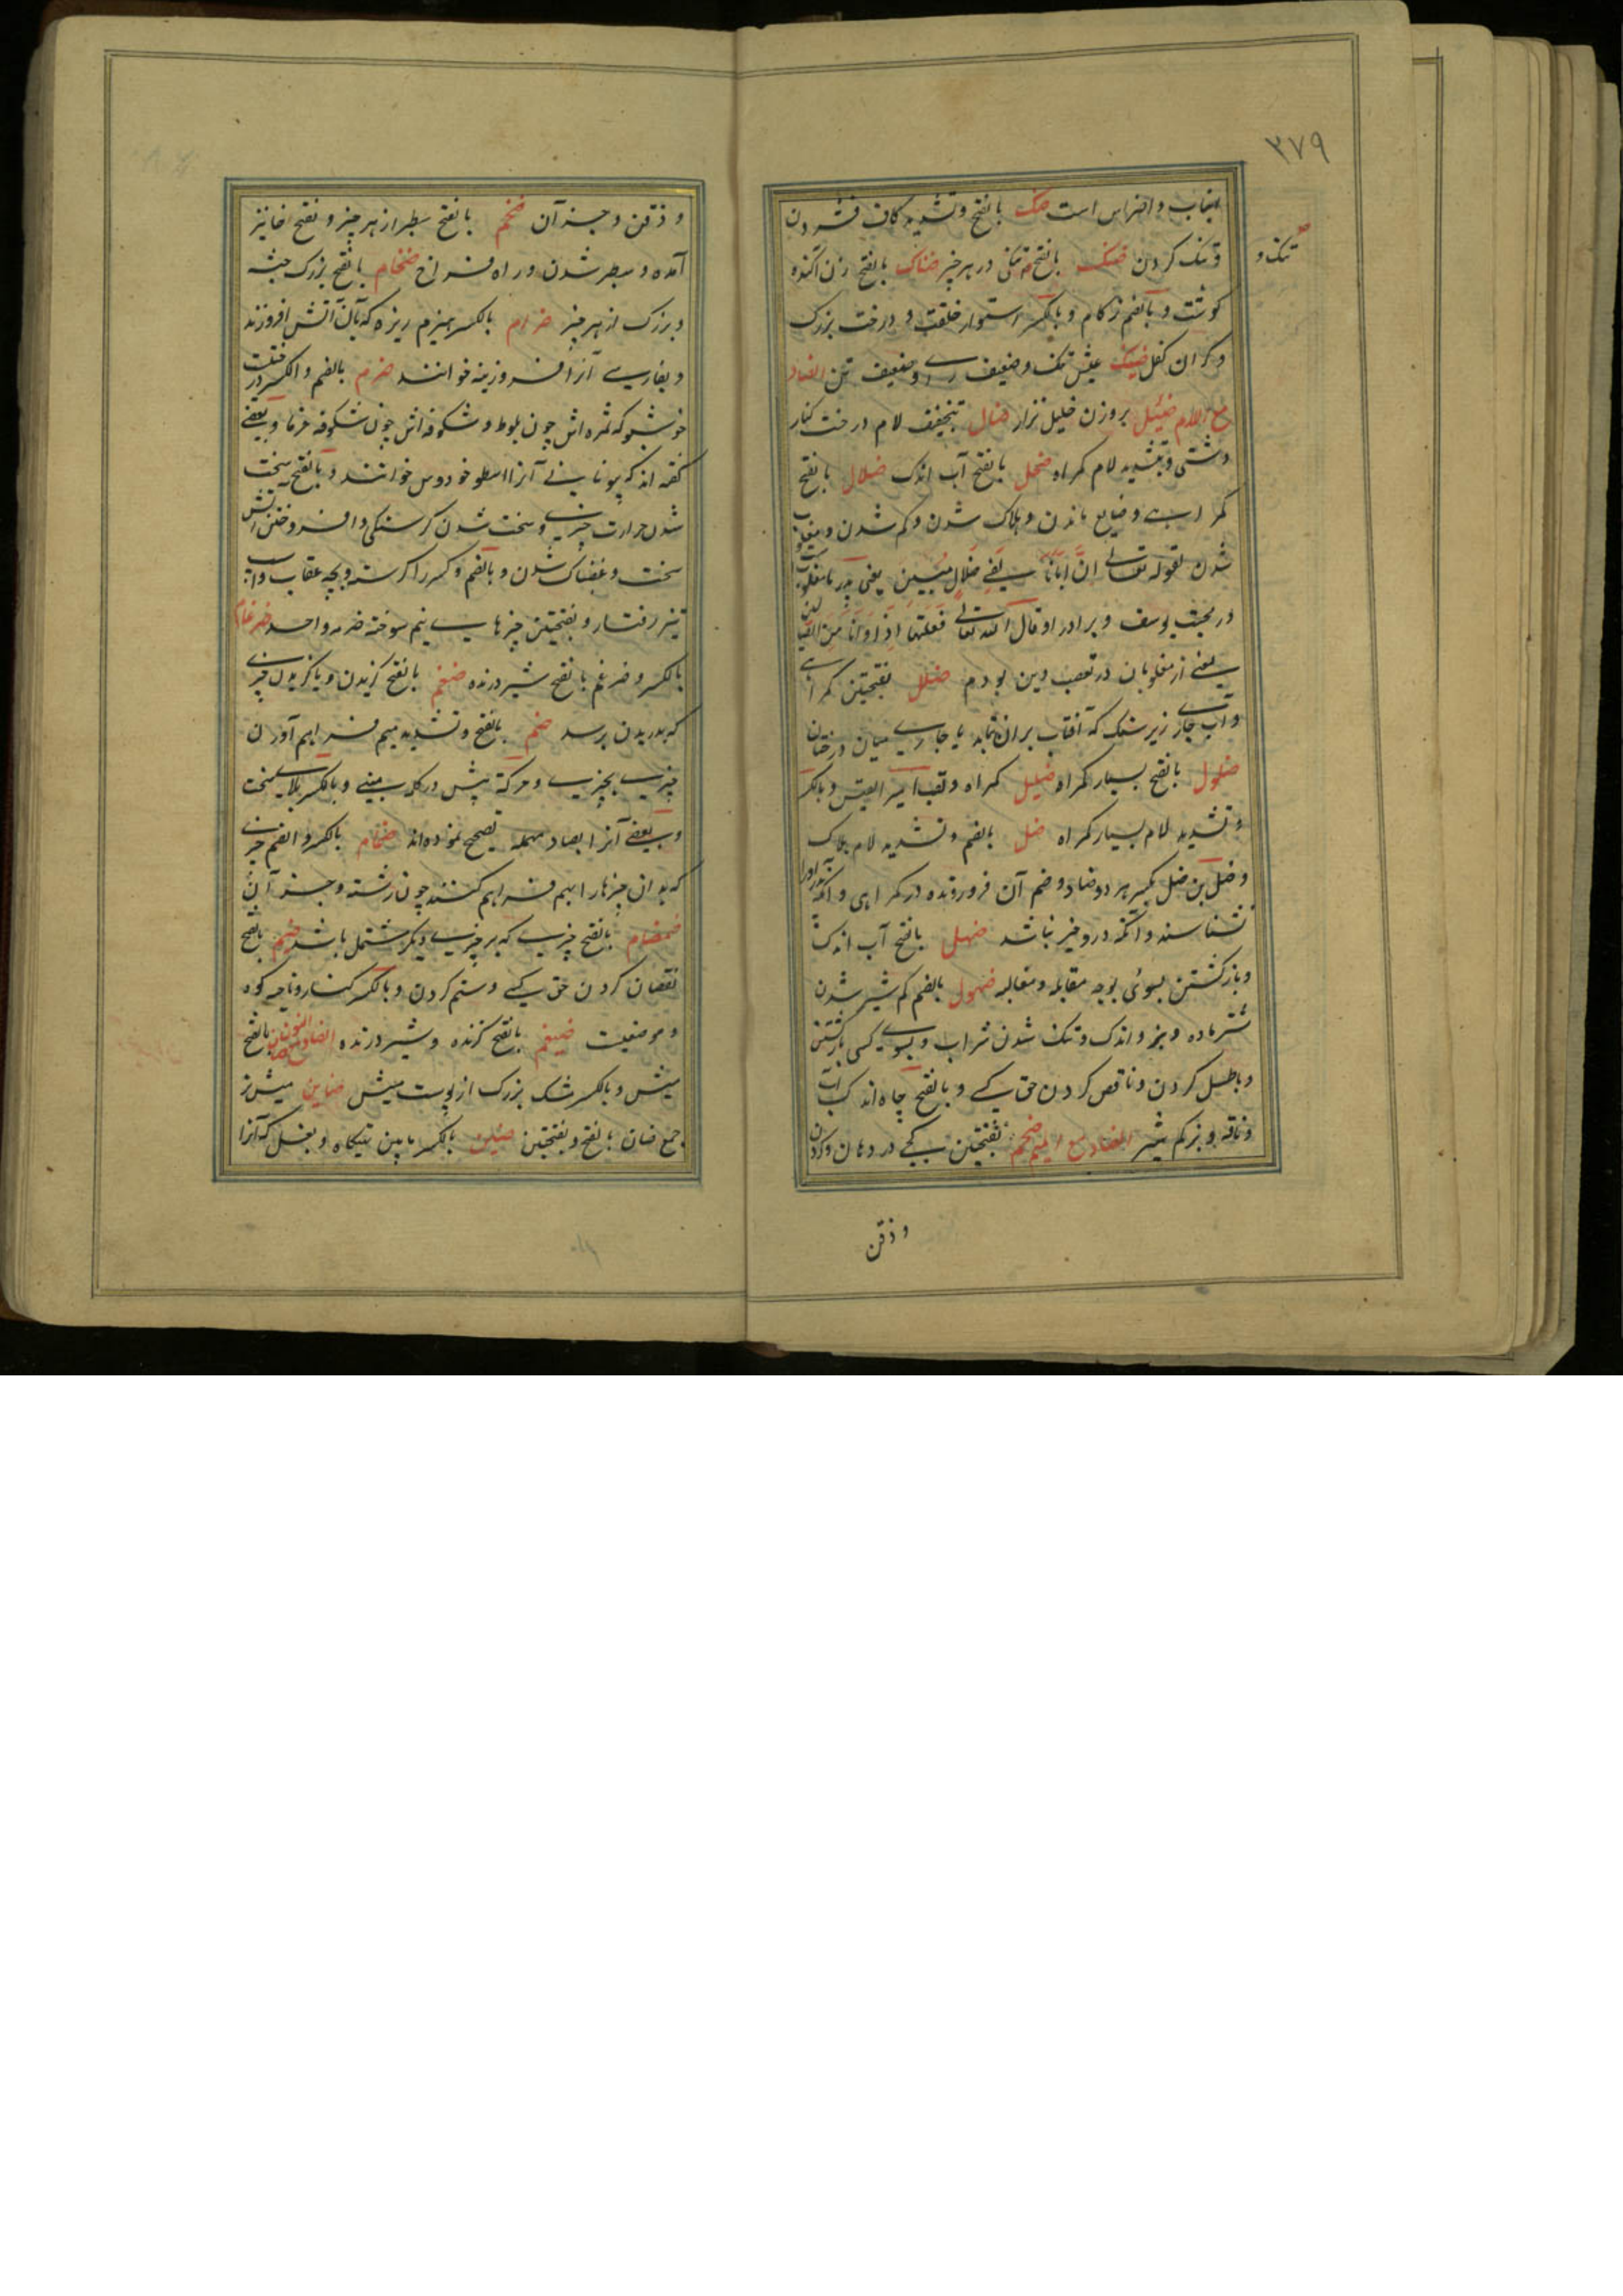 ۳۷۹
انیاب و اضراس است ضک بالفتح و تشدید کاف فشردن
و تنک کردن ضنک بالفتح تنکی در هر چیز ضناک بالفتح زن اکنده
تنک و
کوشت و بالضم زکام و بالکسر استوار خلقت و درخت بزرک
و کران کفل ضنیک عیش تنک و ضعیف رای و ضعیف تن الضاد
مع اللام ضئیل بروزن خلیل نزار ضال بتخفیف لام درخت کنار
دشتی و بتشدید لام کمراه ضحل بالفتح آب اندک ضلال بالفتح
کمراهی و ضایع ماندن و هلاک شدن و کم شدن و مغلوب
شدن لقوله تعالی انّ ابانا لفی ضلال مبین یعنی پدر ما مغلوب است
در محبت یوسف و برادر او قال الله تعالی فعلتها اذا و انا من الضالین
یعنی از مغلوبان در تعصب دین بودم ضلل بفتحتین کمراهی
و آب جاری زیر سنک که آفتاب بران نتابد یا جاری میان درختان
ضلول بالفتح بسیار کمراه ضلیل کمراه و لقب امرء القیس و بالکسر
و تشدید لام بسیار کمراه ضل بالضم و تشدید لام هلاک
و ضل بن ضل بکسر هر دو ضاد و ضم آن فرورونده در کمراهی و آنکه پدر او را
نشناسند و آنکه درو خیر نباشد ضهل بالفتح آب اندک
و بازکشتن بسوی بوجه مقابله و مغالبه ضهول بالضم کم شیر شدن
شتر ماده و بز و اندک و تنک شدن شراب و بسوی کسی بازکشتن
و باطل کردن و ناقص کردن حق کسی و بالفتح چاه اندک آب
و ناقه و بز کم شیر الضاد مع المیم ضجم بفتحتین کجی در دهان و کردن
و ذقن
و ذقن و جز آن ضخم بالفتح سطبر از هر چیز و بفتح خا نیز
آمده و سطبر شدن و راه فراخ ضخام بالفتح بزرک جثه
و بزرک از هر چیز ضرام بالکسر هیزم ریزه که بآن آتش افروزند
و بفارسی آنرا فروزینه خوانند ضرم بالضم و الکسر درختیست
خوشبو که ثمره اش چون بلوط و شکوفه اش چون شکوفه خرما و بعضی
کفته اند که یونانی آنرا اسطوخودوس خوانند و بالفتح سخت
شدن حرارت چیزی و سخت شدن کرسنکی و افروختن آتش
سخت و غضبناک شدن و بالضم و کسر را کرسنه و بچه عقاب و اسب
تیز رفتار و بفتحتین چیزهای نیم سوخته ضرمه واحد ضرغام
بالکسر و ضرغم بالفتح شیر درنده ضغم بالفتح کزیدن و یا کزیدن چیزی
که بدریدن برسد ضم بالفتح و تشدید میم فراهم آوردن
چیزی بچیزی و حرکة پیش در کلمه مبنی و بالکسر بلای سخت
و بعضی آنرا بصاد مهمله تصحیح نموده اند ضمام بالکسر و الضم چیزی
که بدان چیزها را بهم فراهم کنند چون رشته و جز آن
ضمضام بالفتح چیزی که بر چیزی دیکر مشتمل باشد ضیم بالفتح
نقصان کردن حق کسی و ستم کردن و بالکسر کنار و ناحیه کوه
و موضعیست ضیغم بالفتح کزنده و شیر درنده الضاد مع النون ضان بالفتح
میش و بالکسر مشک بزرک از پوست میش ضاین میش نر
جمع ضان بالفتح و بفتحتین ضبن بالکسر مابین تهیکاه و بغل که آنرا